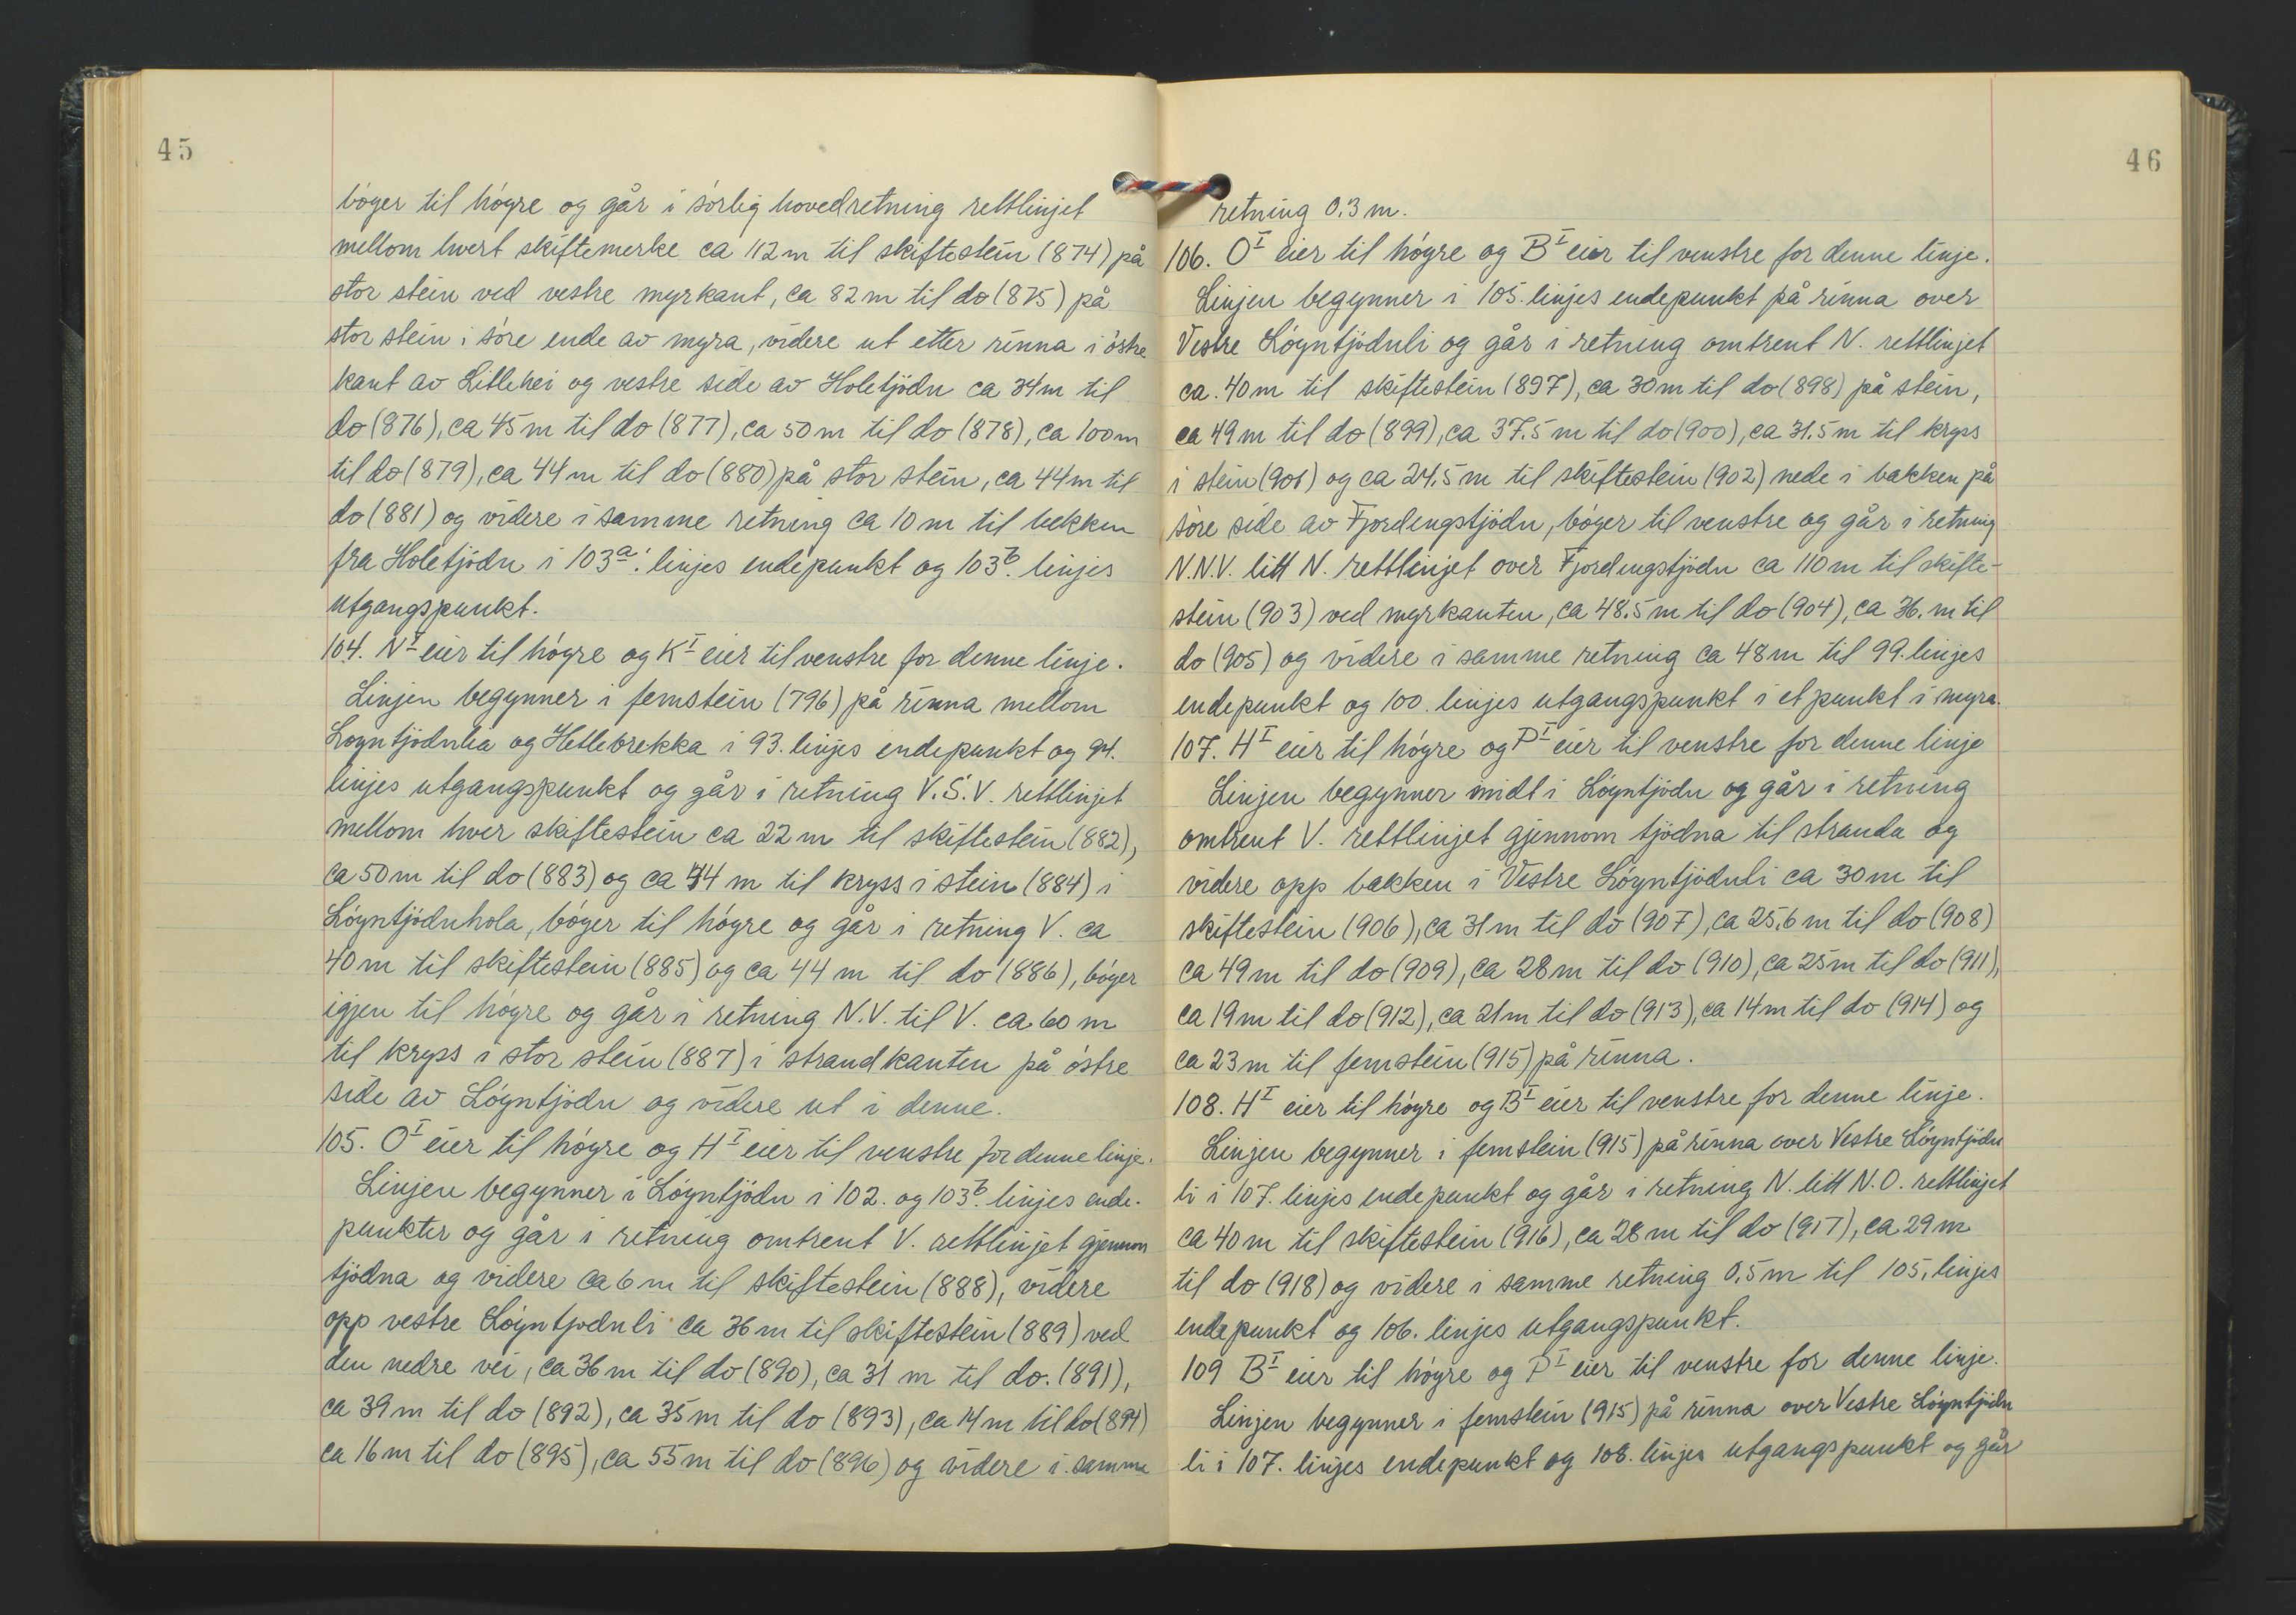 45
bóger til hógre og går i sórlig hovedretning rettlinjet
mellom hvert skiftemerke ca 112 m til skiftestein (874) på
stor stein ved vestre myrkant, ca 82 m til do (875) på
stor stein i sóre ende av myra, videre ut etter rinna i óstre
kant av Litlehei og vestre side av Holetjódn ca 34 m til
do (876), ca 45 m til do (877), ca 50 m til do (878), ca 100 m
til do (879), ca 44 m til do (880) på stor stein, ca 44 m til
do (881) og videre i samme retning ca 10 m til bekken
fra Holetjódn i 103a. linjes endepunkt og 103b. linjes
utgangspunkt.
104. NI eier til hógre og KI eier til venstre for denne linje.
Linjen begynner i femstein (796) på rinna mellom
Loyntjódnlia og Hetlebrekka i 93. linjes endepunkt og 94.
linjes utgangspunkt og går i retning V.S.V. rettlinjet
mellom hver skiftestein ca 22 m til skiftestein (882),
ca 50 m til do (883) og ca 44 m til kryss i stein (884) i
Lóyntjódnhola, bóger til hógre og går i retning V. ca
40 m til skiftestein (885) og ca 44 m til do (886), bóger
igjen til hógre og går i retning N.V. til V. ca 60 m
til kryss i stor stein (887) i strandkanten på óstre
side av Lóyntjódn og videre ut i denne.
105. OI eier til hógre og HI eier til venstre for denne linje.
Linjen begynner i Lóyntjódn i 102. og 103b. linjes ende-
punkter og går i retning omtrent V. rettlinjet gjennom
tjódna og videre ca 6 m til skiftestein (888), videre
opp vestre Lóyntjodnli ca 36 m til skiftestein (889) ved
den nedre vei, ca 36 m til do (890), ca 31 m til do. (891),
ca 39 m til do (892), ca 35 m til do (893), ca 14 m til do (894)
ca 16 m til do (895), ca 55 m til do (896) og videre i samme
46
retning 0.3 m.
106. OI eier til hógre og BI eier til venstre for denne linje.
Linjen begynner i 105. linjes endepunkt på rinna over
Vestre Lóyntjódnli og går i retning omtrent N. rettlinjet
ca. 40 m til skiftestein (897), ca 30 m til do (898) på stein,
ca 49 m til do (899), ca 37.5 m til do (900), ca 31.5 m til kryss
i stein (901) og ca 24.5 m til skiftestein (902) nede i bakken på
sóre side av Fjordengstjódn, bóger til venstre og går i retning
N.N.V. litt N. rettlinjet over Fjordengstjódn ca 110 m til skifte-
stein (903) ved myrkanten, ca 48.5 m til do (904), ca 36. m til
do (905) og videre i samme retning ca 48 m til 99. linjes
endepunkt og 100. linjes utgangspunkt i et punkt i myra.
107. HI eier til hógre og PI eier til venstre for denne linje
Linjen begynner midt i Lóyntjódn og går i retning
omtrent V. rettlinjet gjennom tjódna til stranda og
videre opp bakken i Vestre Lóyntjódnli ca 30 m til
skiftestein (906), ca 31 m til do (907), ca 25.6 m til do (908)
ca 49 m til do (909), ca 28 m til do (910), ca 25 m til do (911),
ca 19 m til do (912), ca 21 m til do (913), ca 14 m til do (914) og
ca 23 m til femstein (915) på rinna.
108. HI eier til hógre og BI eier til venstre for denne linje.
Linjen begynner i femstein (915) på rinna over Vestre Lóyntjódn
li i 107. linjes endepunkt og går i retning N. litt N.O. rettlinjet
ca 40 m til skiftestein (916), ca 28 m til do (917), ca 29 m
til do (918) og videre i samme retning 0,5 m til 105. linjes
endepunkt og 106. linjes utgangspunkt.
109 BI eier til hógre og PI eier til venstre for denne linje.
Linjen begynner i femstein (915) på rinna over Vestre Lóyntjódn
li i 107. linjes endepunkt og 108. linjes utgangspunkt og går